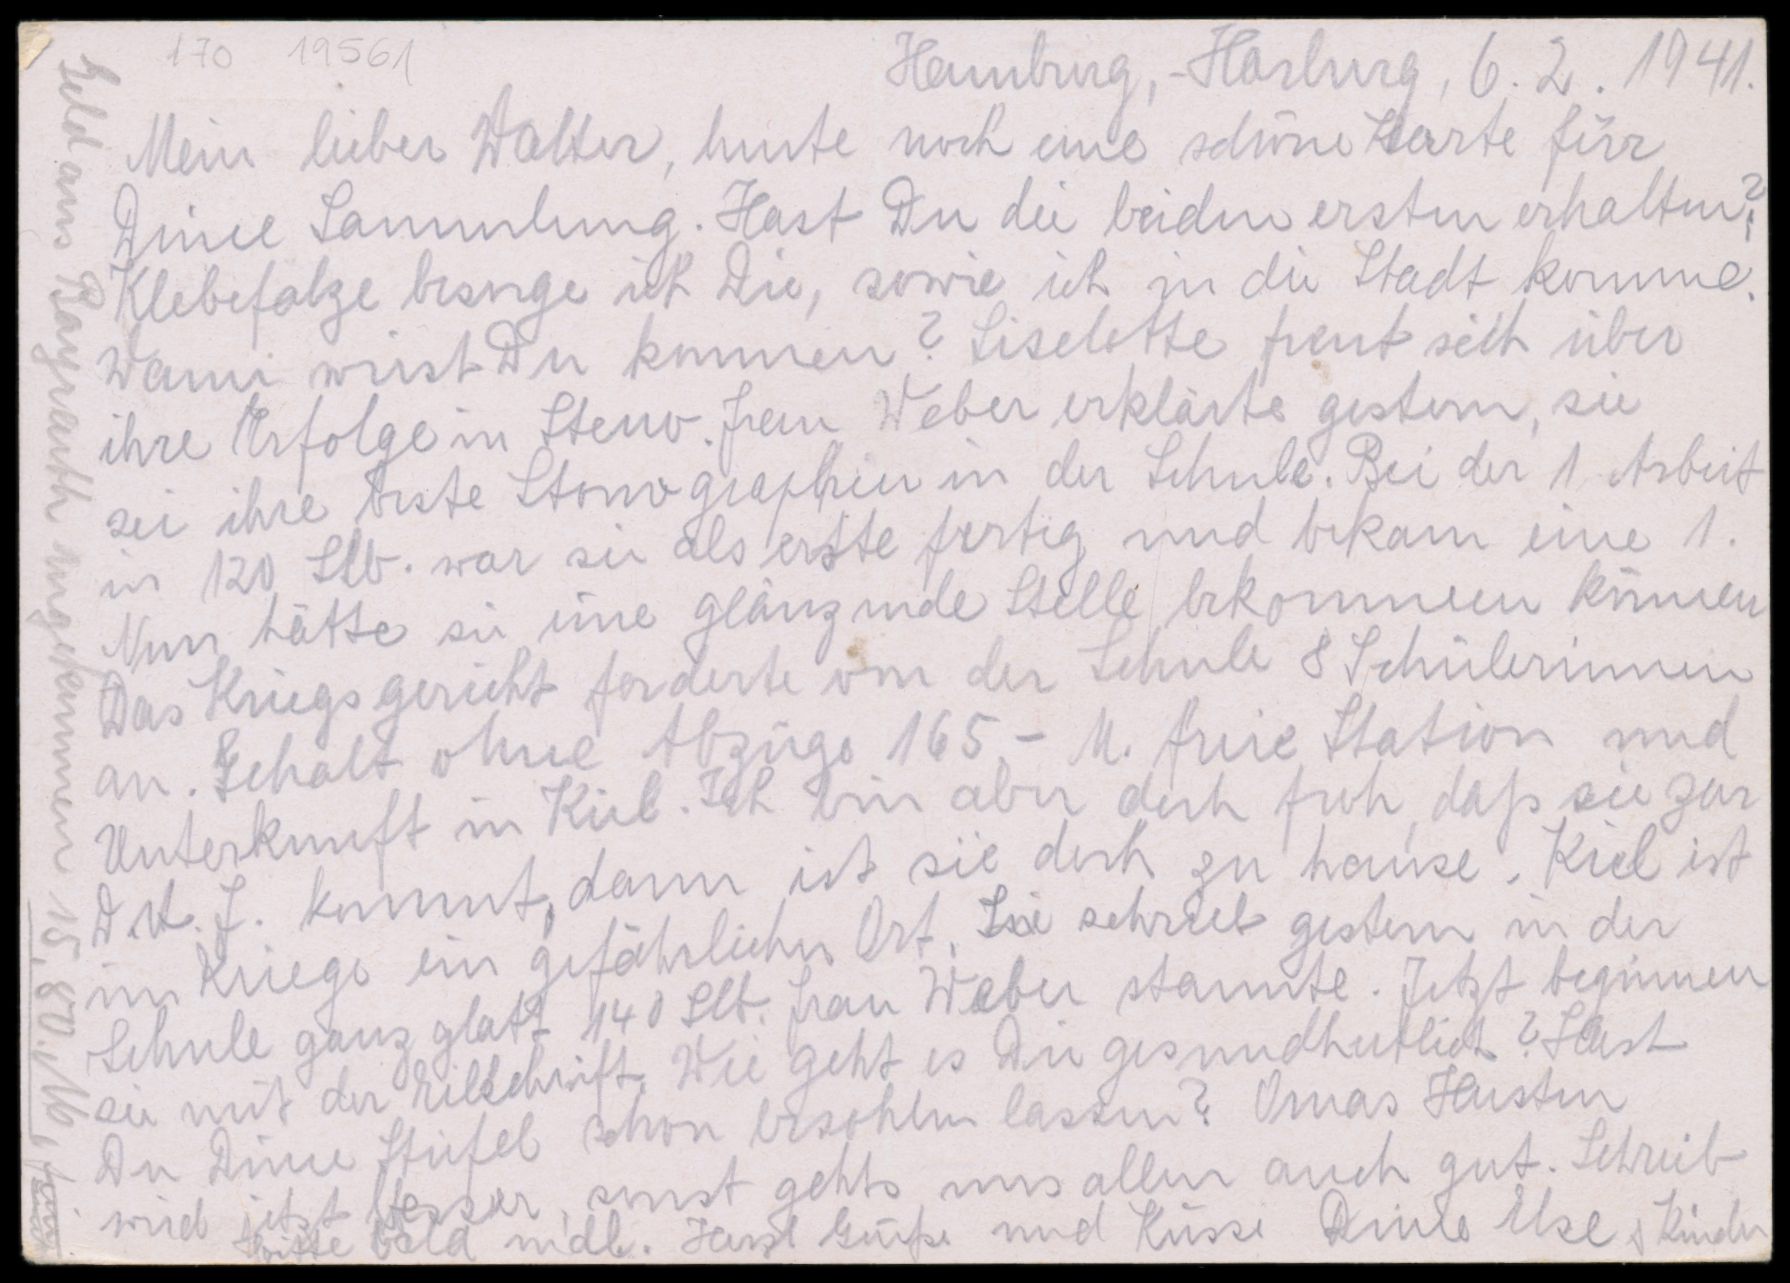 170 19561
Hamburg, -Harburg, 6.2.1941.
Mein lieber Walter, heute noch eine schöne Karte für
Deine Sammlung. Hast Du die beiden ersten erhalten?
Klebefalze besorge ich Dir, sowie ich in die Stadt komme.
Wann wirst Du kommen? Liselotte freut sich über
ihre Erfolge in Steno. Frau Weber erklärte gestern, sie
sei ihre beste Stenographin in der Schule. Bei der 1. Arbeit
in 120 Slb. war sie als erste fertig und bekam eine 1.
Nun hätte sie eine glänzende Stelle bekommen können
Das Kriegsgericht forderte von der Schule 8 Schülerinnen
an. Gehalt ohne Abzüge 165,- M. freie Station und
Unterkunft in Kiel. Ich bin aber doch froh, daß sie zur
D.A.F. kommt, dann ist sie doch zu hause. Kiel ist
im Kriege ein gefährlicher Ort. Sie schrieb gestern in der
Schule ganz glatt 140 Slb. Frau Weber staunte. Jetzt beginnen
sie mit der Eilschrift. Wie geht es Dir gesundheitlich? Hast
Du Deine Stiefel schon besohlen lassen? Omas Husten
wird jetzt besser, sonst gehts uns allen auch gut. Schreib
bitte bald mdl. Herzl Grüße und Küsse Deine Else & Kinder
Geld aus Bayreuth angekommen 15,80 M,